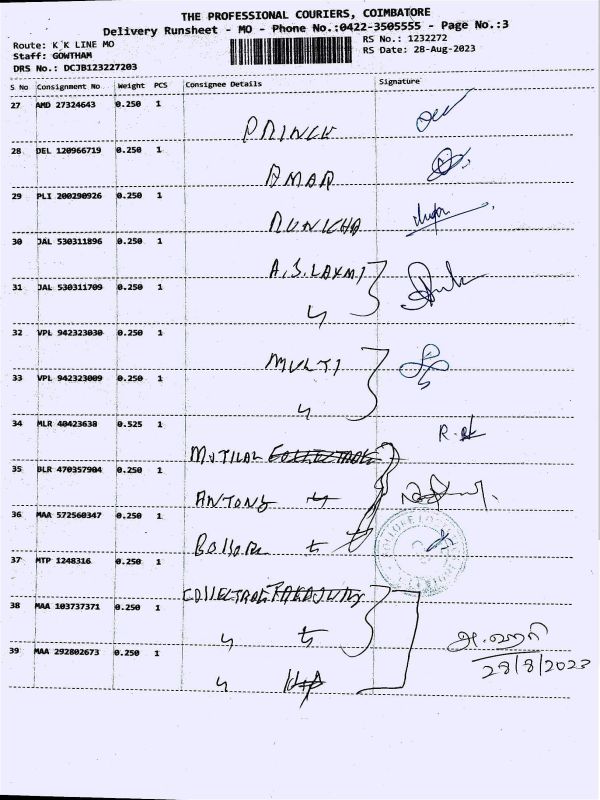 THE PROFESSIONAL COURIERS, COIMBATORE
Delivery Runsheet - MO - Phone No.:0422-3505555 - Page No.:3
Route: K K LINE MO
RS No.: 1232272
Staff: GOWTHAM
RS Date: 28-Aug-2023
DRS No.: DCJB123227203
S No Consignment No Weight PCS Consignee Details Signature
27 AMD 27324643 0.250 1
PRINCE
28 DEL 120966719 0.250 1
AMAR
29 PLI 200290926 0.250 1
30 JAL 530311896 0.250 1
A.S.LAXMI
31 JAL 530311709 0.250 1
32 VPL 942323030 0.250 1
MULTI
33 VPL 942323009 0.250 1
34 MLR 40423638 0.525 1
MUTILAL
35 BLR 470357904 0.250 1
ANTONY
36 MAA 572560347 0.250 1
37 MTP 1248316 0.250 1
38 MAA 103737371 0.250 1
39 MAA 292802673 0.250 1
28/8/2023